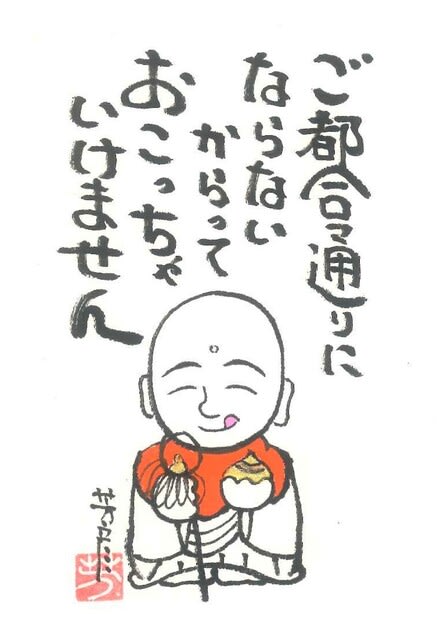 ご都合通りに
ならない
からって
おこっちゃ
いけません